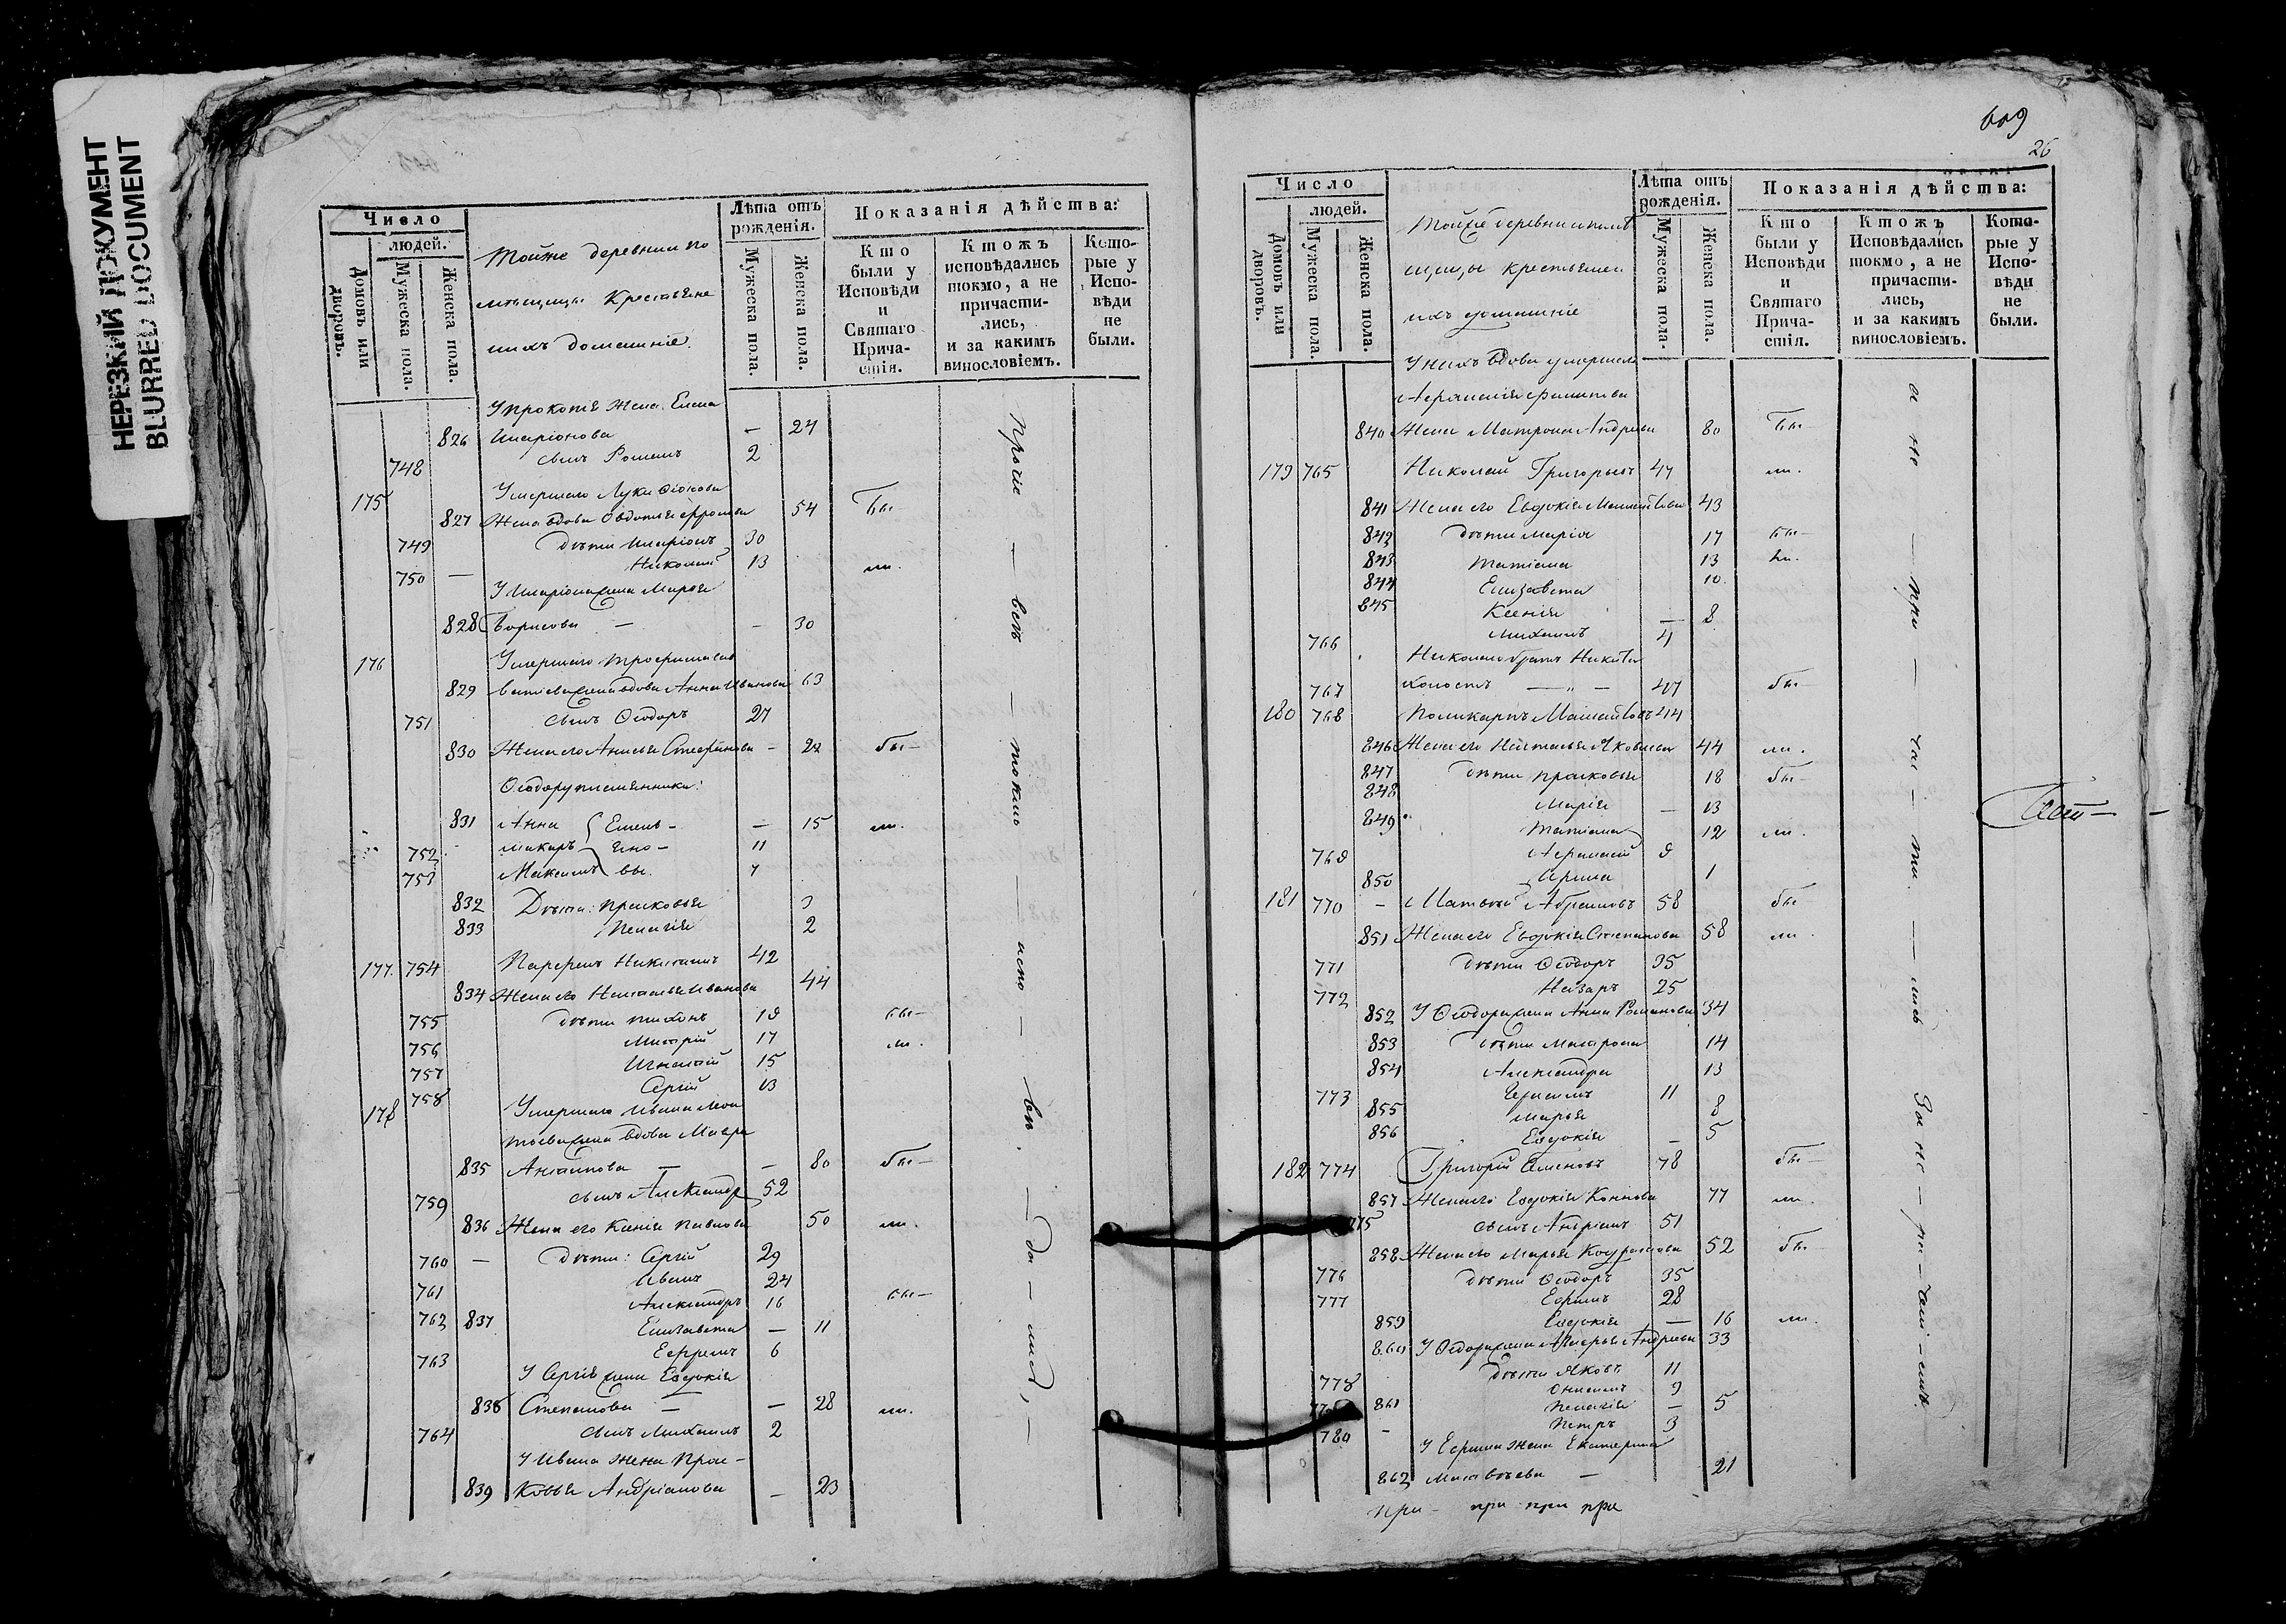 НЕРЕЗКИЙ ДОКУМЕНТ
BLURRED DOCUMENT
Число
людей.
Домовъ или дворовъ.
Мужеска пола.
Женска пола.
Тойже деревни по
мѣщицы Крестьяне
ихъ домашніе.
Лѣта отъ рожденія.
Мужеска пола.
Женска пола.
Показанія дѣйства:
Кто были у Исповѣди и Святаго Причастія.
Ктожъ исповѣдались токмо, а не причастились, и за какимъ винословіемъ.
Которые у Исповѣди не были.
У прокопія жена Елена
826 Иларіонова — 24
748 сынъ Романъ 2
175 Умершаго Луки
827 Жена вдова Евдотья 54 бы—
749 дѣти Иларіонъ 30
750 — Николай 13 ли.
У Иларіона жена Марья
828 Борисова — — 30
176 Умершаго
829 жена вдова Анна Иванова 63
751 сынъ Ѳеодоръ 27
830 Жена его Анисья Стефанова — 22 бы—
Ѳеодору племянники:
831 Анна Емель- — 15 ли.
752 Макаръ яно- 11
753 Максимъ вы. 7
832 Дѣти: Прасковья 3
833 Пелагія 2
177 754 Парфенъ Никитинъ 42
834 Жена его Наталья Иванова 44
755 дѣти Тихонъ 19 бы—
756 Дмитрій 17 ли.
757 Игнатій 15
758 Сергій 13
178 Умершаго Ивана
жена вдова Мавра
835 Антипова — — 80 бы—
759 сынъ Александръ 52
836 Жена его Ксенія Павлова 50 ли.
760 — Дѣти: Сергій 29
761 Иванъ 24
762 Александръ 16 бы—
837 Елизавета — 11
763 Ефремъ 6
У Сергія жена Евдокія
838 Степанова — — 28 ли.
764 сынъ Михаилъ 2
У Ивана жена Прас-
839 ковья Андріанова — 23
прочіе — всѣ — токмо — испо — вѣ — да — лись, —
609
26
Число
людей.
Домовъ или дворовъ.
Мужеска пола.
Женска пола.
Тойже деревни помѣ
щицы крестьяне и
ихъ домашніе
Лѣта отъ рожденія.
Мужеска пола.
Женска пола.
Показанія дѣйства:
Кто были у Исповѣди и Святаго Причастія.
Ктожъ Исповѣдались токмо, а не причастились, и за какимъ винословіемъ.
Которые у Исповѣди не были.
У нихъ вдова умершаго
Афанасія Филипова
840 Жена Матрона Андреева 80 бы—
179 765 Николай Григорьевъ 47 ли.
841 Жена его Евдокія 43
842 дѣти Марія 17 бы—
843 Татіана 13 ли.
844 Елизавета 10
845 Ксенія 8
766 Михаилъ 4
Николаю братъ Никита
767 холостъ — „ — 47 бы—
180 768 Поликарпъ 44
846 Жена его Наталья Яковлева 44 ли.
847 дѣти Прасковья 18 бы—
848 Марія — 13
849 Татіана 12 ли.
769 Афанасій 9
850 Арина 1
181 770 — Матвей Абрамовъ 58 бы—
851 Жена его Евдокія Степанова 58 ли.
771 дѣти Ѳеодоръ 35
772 Назаръ 25
852 У Ѳеодора жена Анна Романова 34
853 дѣти Матрона 14
854 Александра 13
773 Герасимъ 11
855 Марья 8
856 Евдокія — 5
182 774 Григорій Семеновъ 78 бы—
857 Жена его Евдокія Кононова 77 ли.
775 сынъ Андріанъ 51
858 Жена его Марья Кондратова 52 бы—
776 дѣти Ѳеодоръ 35
777 Ефимъ 28
859 Евдокія — 16 ли.
860 У Ѳеодора жена Марья Андреева 33
778 дѣти Яковъ 11
Онисимъ 9
861 Пелагія — 5
780 — Петръ 3
У Ефима жена Екатерина
862 Матвѣева — 21
а не — при — ча — сти — лись За не — ра — чені — емъ.
при - при при при